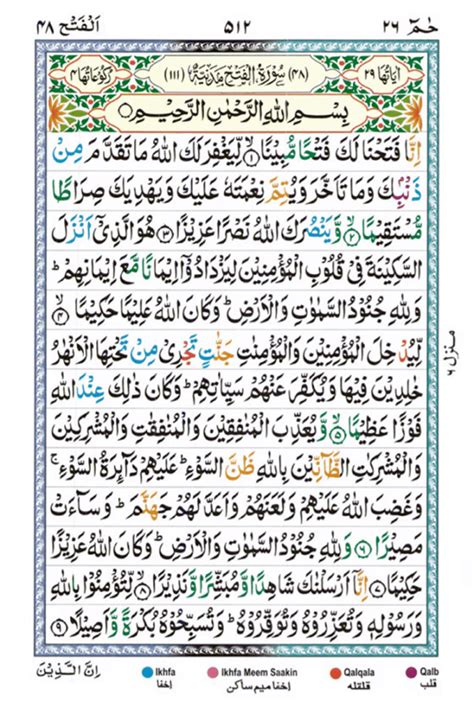 حٰمٓ ٢٦
٥١٢
اَلْفَتْح ٤٨
اٰيَاتُهَا ٢٩
(٤٨) سُوْرَةُ الْفَتْحِ مَدَنِيَّةٌ (١١١)
رُكُوْعَاتُهَا ٤
بِسْمِ اللّٰهِ الرَّحْمٰنِ الرَّحِيْمِ
اِنَّا فَتَحْنَا لَكَ فَتْحًا مُّبِيْنًا ۙ ﴿١﴾ لِّيَغْفِرَ لَكَ اللّٰهُ مَا تَقَدَّمَ مِنْ
ذَنْۢبِكَ وَمَا تَاَخَّرَ وَيُتِمَّ نِعْمَتَهٗ عَلَيْكَ وَيَهْدِيَكَ صِرَاطًا
مُّسْتَقِيْمًا ۙ ﴿٢﴾ وَّيَنْصُرَكَ اللّٰهُ نَصْرًا عَزِيْزًا ﴿٣﴾ هُوَ الَّذِيْٓ اَنْزَلَ
السَّكِيْنَةَ فِيْ قُلُوْبِ الْمُؤْمِنِيْنَ لِيَزْدَادُوْٓا اِيْمَانًا مَّعَ اِيْمَانِهِمْ ؕ
وَلِلّٰهِ جُنُوْدُ السَّمٰوٰتِ وَالْاَرْضِ ؕ وَكَانَ اللّٰهُ عَلِيْمًا حَكِيْمًا ۙ ﴿٤﴾
لِّيُدْخِلَ الْمُؤْمِنِيْنَ وَالْمُؤْمِنٰتِ جَنّٰتٍ تَجْرِيْ مِنْ تَحْتِهَا الْاَنْهٰرُ
خٰلِدِيْنَ فِيْهَا وَيُكَفِّرَ عَنْهُمْ سَيِّاٰتِهِمْ ؕ وَكَانَ ذٰلِكَ عِنْدَ اللّٰهِ
فَوْزًا عَظِيْمًا ۙ ﴿٥﴾ وَّيُعَذِّبَ الْمُنٰفِقِيْنَ وَالْمُنٰفِقٰتِ وَالْمُشْرِكِيْنَ
وَالْمُشْرِكٰتِ الظَّآنِّيْنَ بِاللّٰهِ ظَنَّ السَّوْءِ ؕ عَلَيْهِمْ دَآىِٕرَةُ السَّوْءِ ۚ
وَغَضِبَ اللّٰهُ عَلَيْهِمْ وَلَعَنَهُمْ وَاَعَدَّ لَهُمْ جَهَنَّمَ ؕ وَسَآءَتْ
مَصِيْرًا ﴿٦﴾ وَلِلّٰهِ جُنُوْدُ السَّمٰوٰتِ وَالْاَرْضِ ؕ وَكَانَ اللّٰهُ عَزِيْزًا
حَكِيْمًا ﴿٧﴾ اِنَّآ اَرْسَلْنٰكَ شَاهِدًا وَّمُبَشِّرًا وَّنَذِيْرًا ۙ ﴿٨﴾ لِّتُؤْمِنُوْا بِاللّٰهِ
وَرَسُوْلِهٖ وَتُعَزِّرُوْهُ وَتُوَقِّرُوْهُ ؕ وَتُسَبِّحُوْهُ بُكْرَةً وَّاَصِيْلًا ﴿٩﴾
منزل ٦
اِنَّ الَّذِيْنَ
Ikhfa اخفا
Ikhfa Meem Saakin اخفا ميم ساكن
Qalqala قلقلہ
Qalb قلب